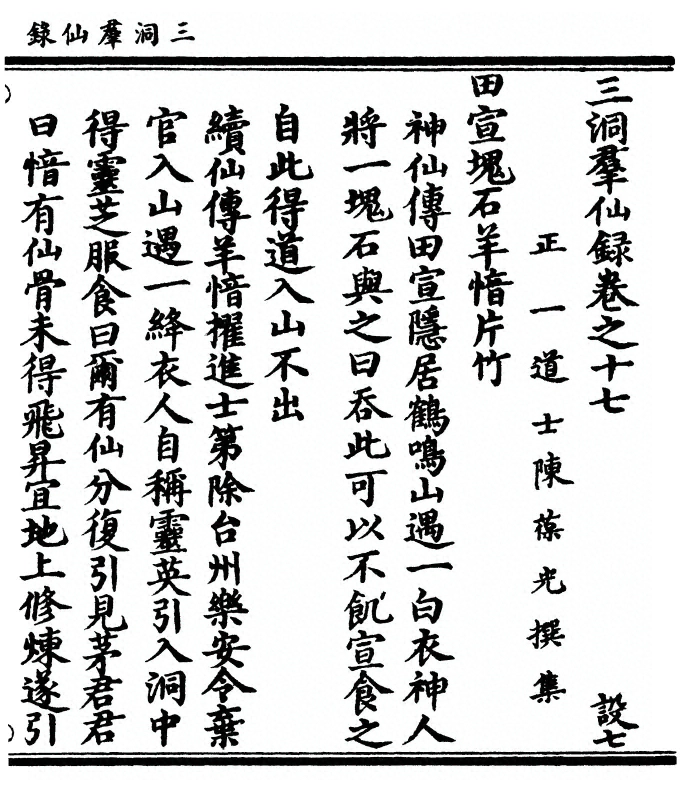 三洞羣仙錄
三洞羣仙録卷之十七
設七
正一道士陳葆光撰集
田宣塊石羊愔片竹
神仙傳田宣隱居鶴鳴山遇一白衣神人
將一塊石與之曰吞此可以不飢宣食之
自此得道入山不出
續仙傳羊愔擢進士第除台州樂安令棄
官入山遇一絳衣人自稱靈英引入洞中
得靈芝服食曰爾有仙分復引見茅君君
曰愔有仙骨未得飛昇宜地上修煉遂引